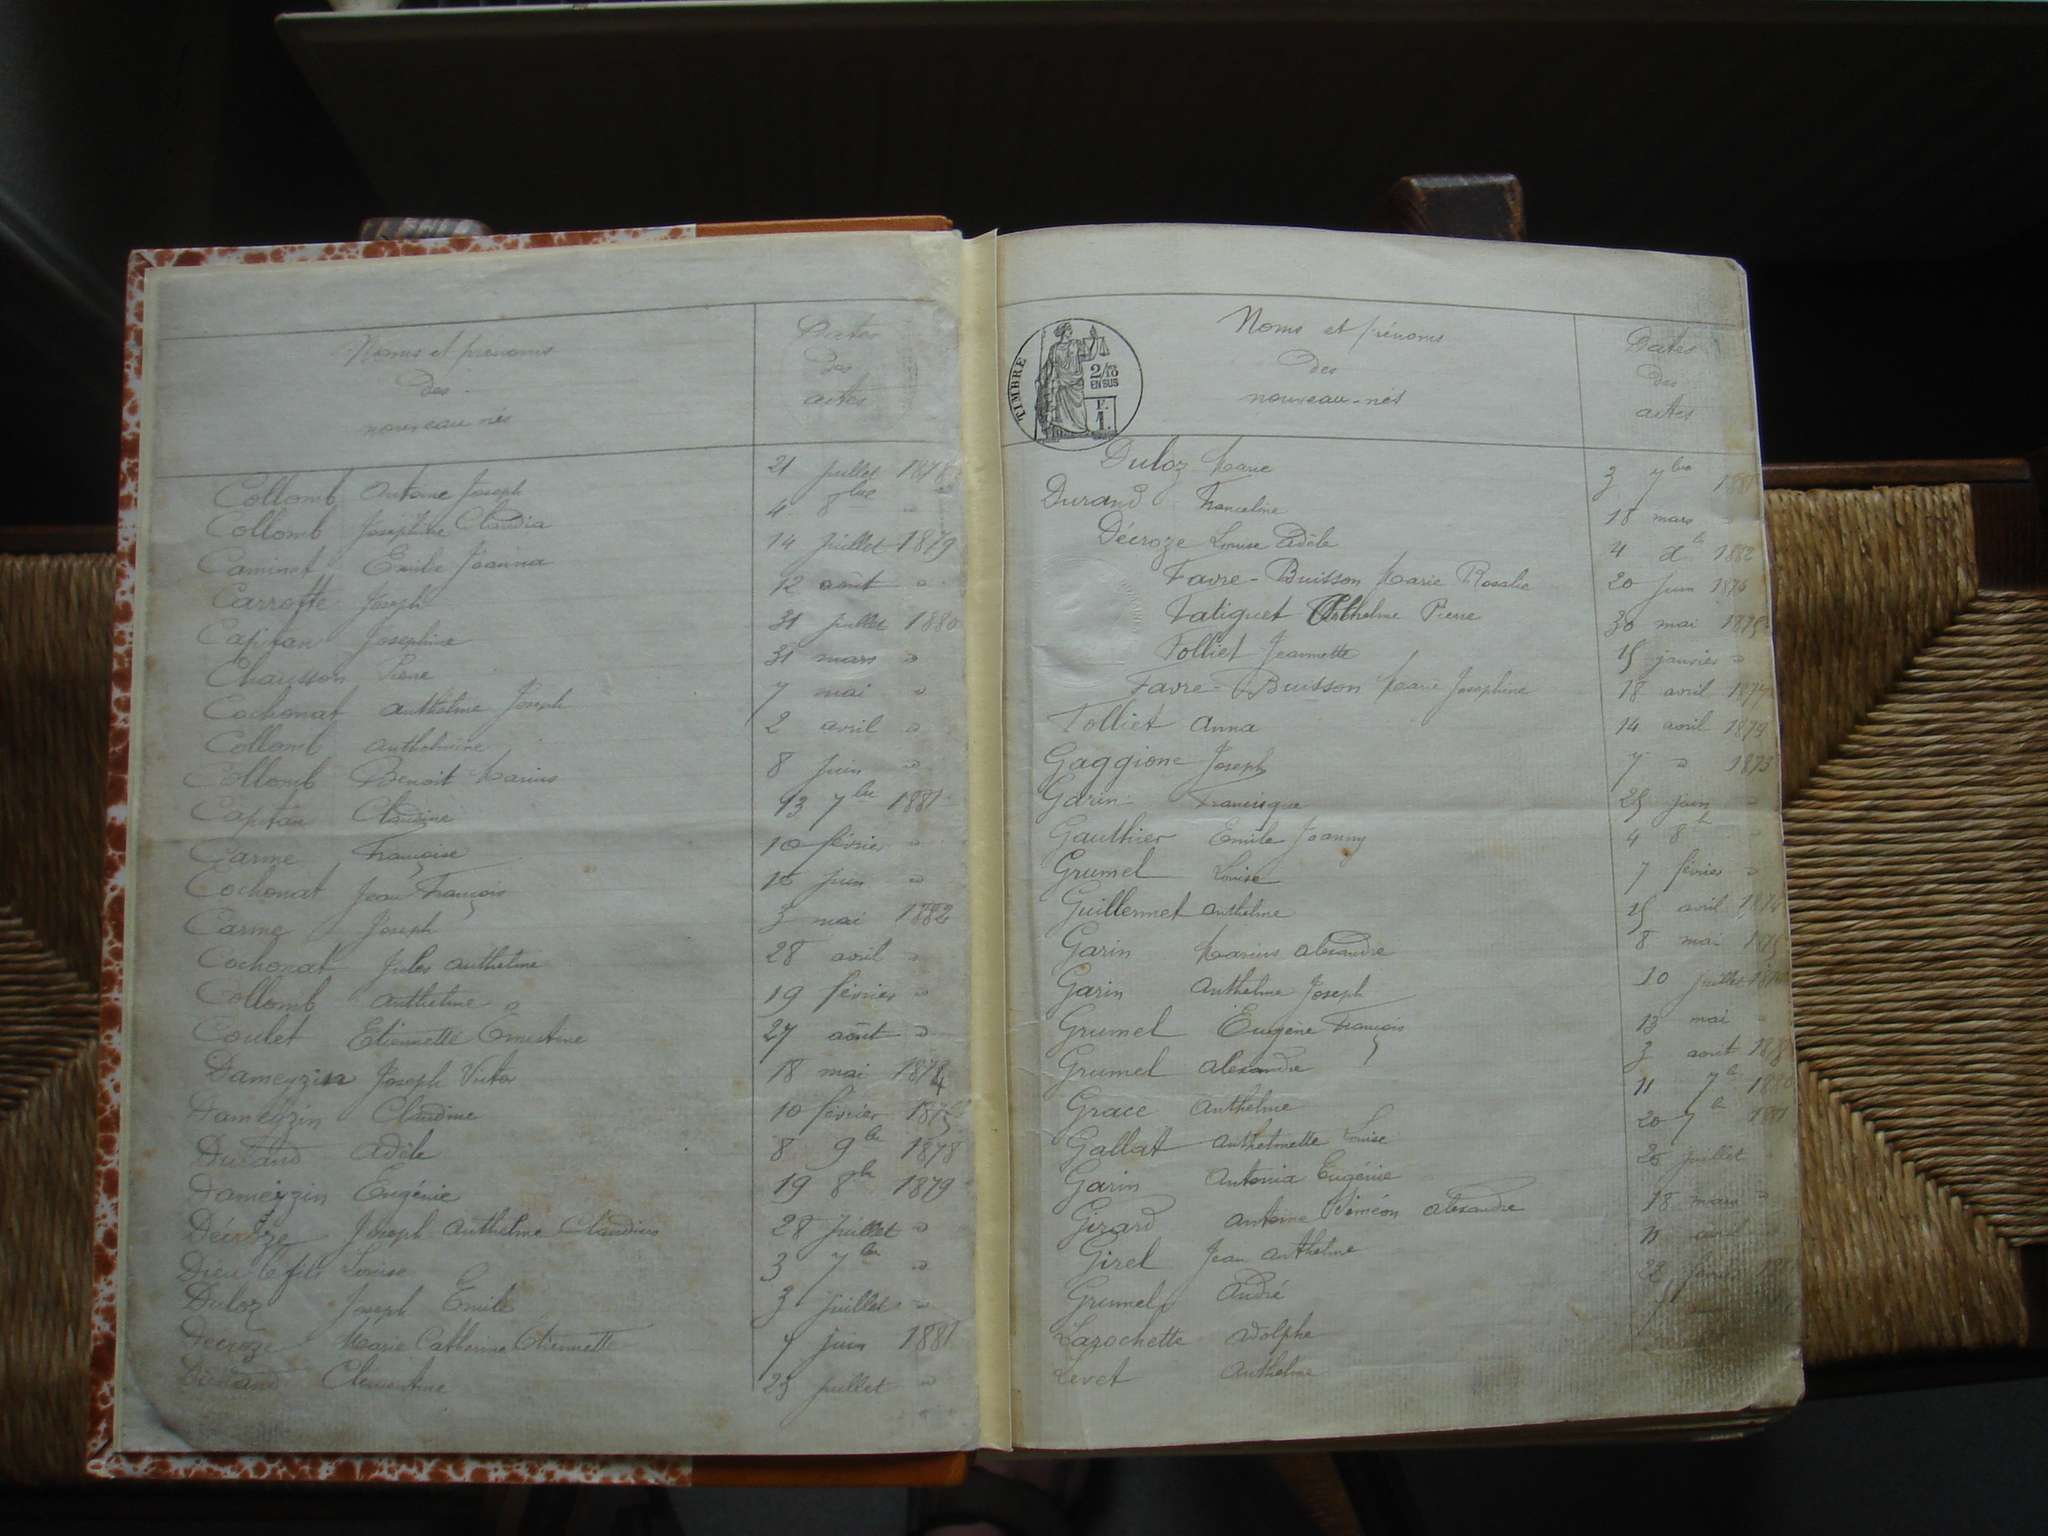 Noms et prénoms
des
nouveau-nés
Dates
des
actes
Collomb Antoine Joseph 21 juillet 1878
Collomb Joséphine Claudia 4 8bre "
Caminet Emile Joanna 14 juillet 1879
Carrotte Joseph 12 août "
Capitan Josephine 31 juillet 1880
Chausson Pierre 31 mars "
Cochonat Anthelme Joseph 7 mai "
Collomb Anthelmine 2 avril "
Collomb Benoit Marius 8 juin "
Capitan Claudine 13 7bre 1881
Carme Françoise 10 février "
Cochonat Jean François 16 juin "
Carme Joseph 3 mai 1882
Cochonat Jules Anthelme 28 avril "
Collomb Anthelme 19 février "
Coulet Etiennette Ernestine 27 août "
Dameyzin Joseph Victor 18 mai 1874
Dameyzin Claudine 10 février 1875
Durand Adèle 8 9bre 1878
Dameyzin Eugénie 19 8bre 1879
Décroze Joseph Anthelme Claudius 28 juillet "
Dieu le fils Louise 3 7bre "
Duloz Joseph Emile 3 juillet "
Décroze Marie Catherine Etiennette 7 juin 1881
Durand Clémentine 23 juillet "
TIMBRE
2/10
EN SUS
F.
1.
Noms et prénoms
des
nouveau-nés
Dates
des
actes
Duloz Marie 3 7bre 1881
Durand Franceline 18 mars "
Décroze Louise Adèle 4 Xbre 1882
Favre-Buisson Marie Rosalie 20 juin 1873
Fatiguet Anthelme Pierre 30 mai 1875
Folliet Jeannette 15 janvier "
Favre-Buisson Marie Josephine 18 avril 1877
Folliet Anna 14 avril 1879
Gaggione Joseph 7 " 1873
Garin Francisque 25 juin "
Gauthier Emile Joanny 4 8bre
Grumel Louise 7 février "
Guillermet Anthelme 15 avril 1874
Garin Marius Alexandre 8 mai 1875
Garin Anthelme Joseph 10 juillet
Grumel Eugène François 13 mai "
Grumel Alexandre 3 août
Grace Anthelme 11 7bre 1880
Gallat Anthelmette Louise 20 7bre 1881
Garin Antonia Eugénie 26 juillet
Girard Antoine Siméon Alexandre 18 mars "
Girel Jean Anthelme 11 avril
Grumel André 22 février
Larochette Adolphe 7
Levet Anthelme